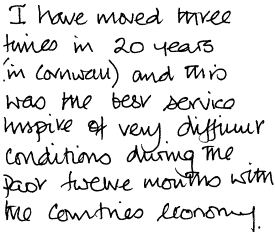 I have moved three
times in 20 years
(in Cornwall) and this
was the best service
inspite of very difficult
conditions during the
past twelve months with
the countries economy.